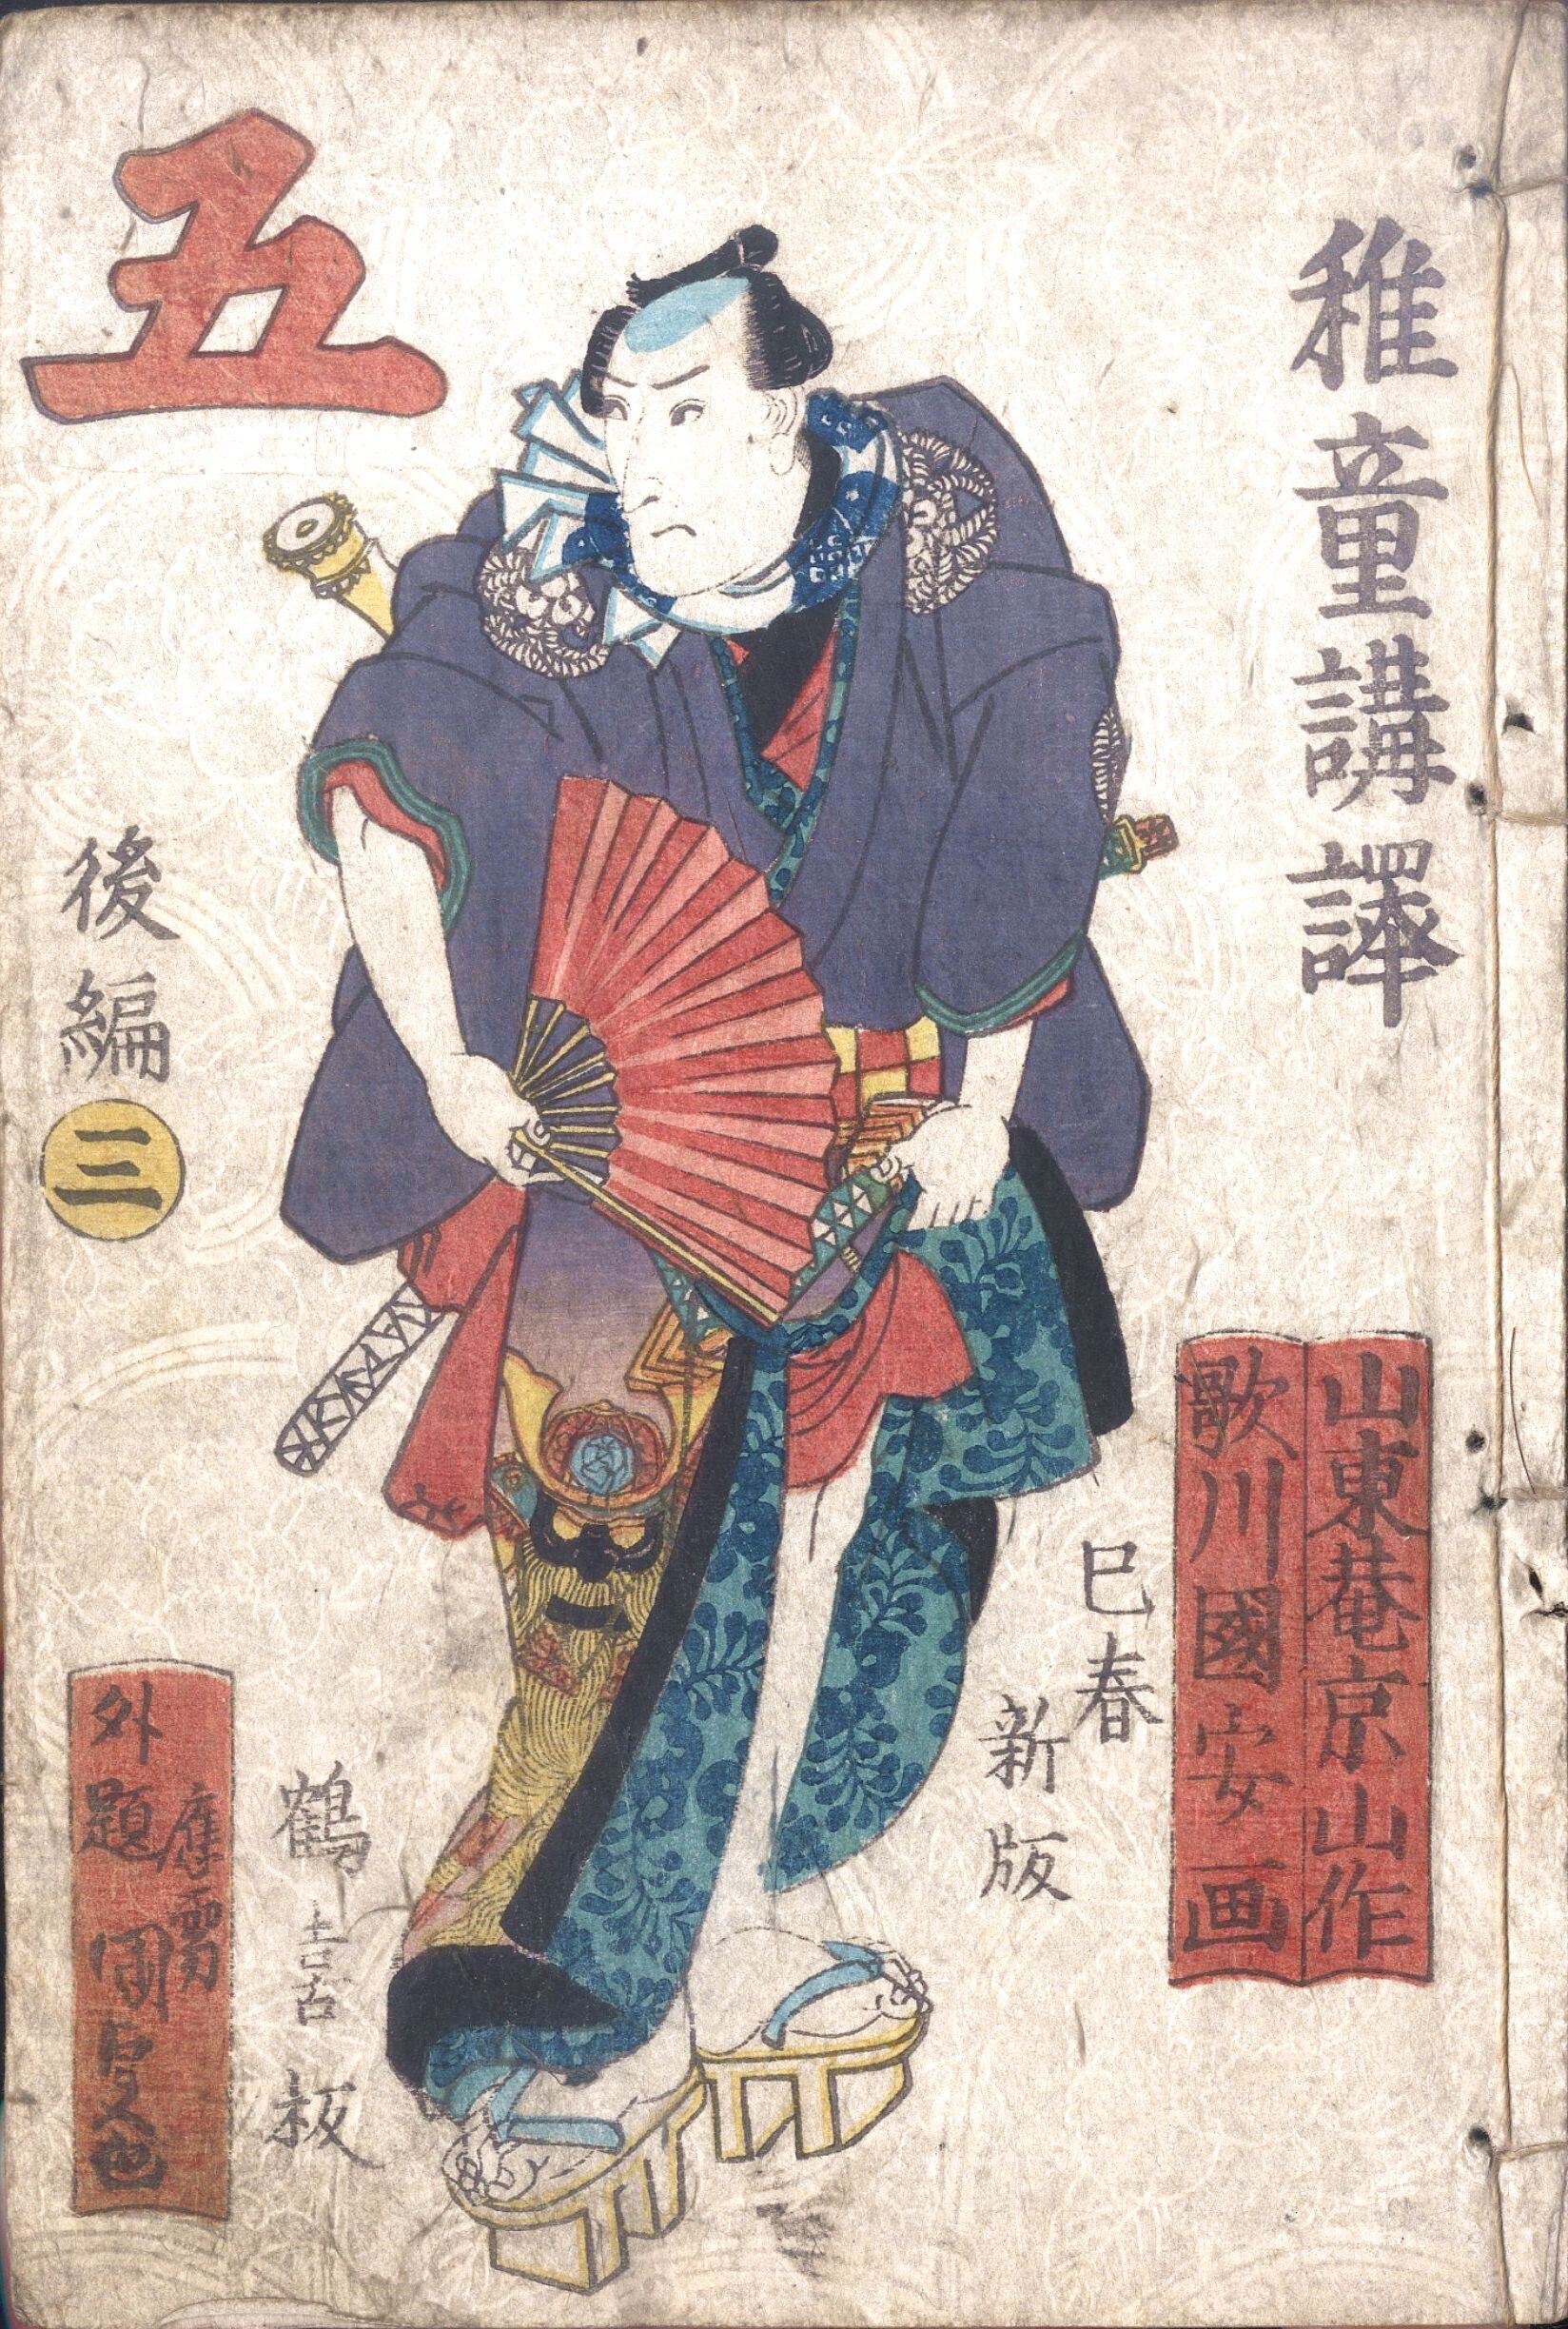 稚童講譯
山東菴京山作
歌川國安画
巳春
新版
五
後編
三
鶴喜板
應需
外題國貞画